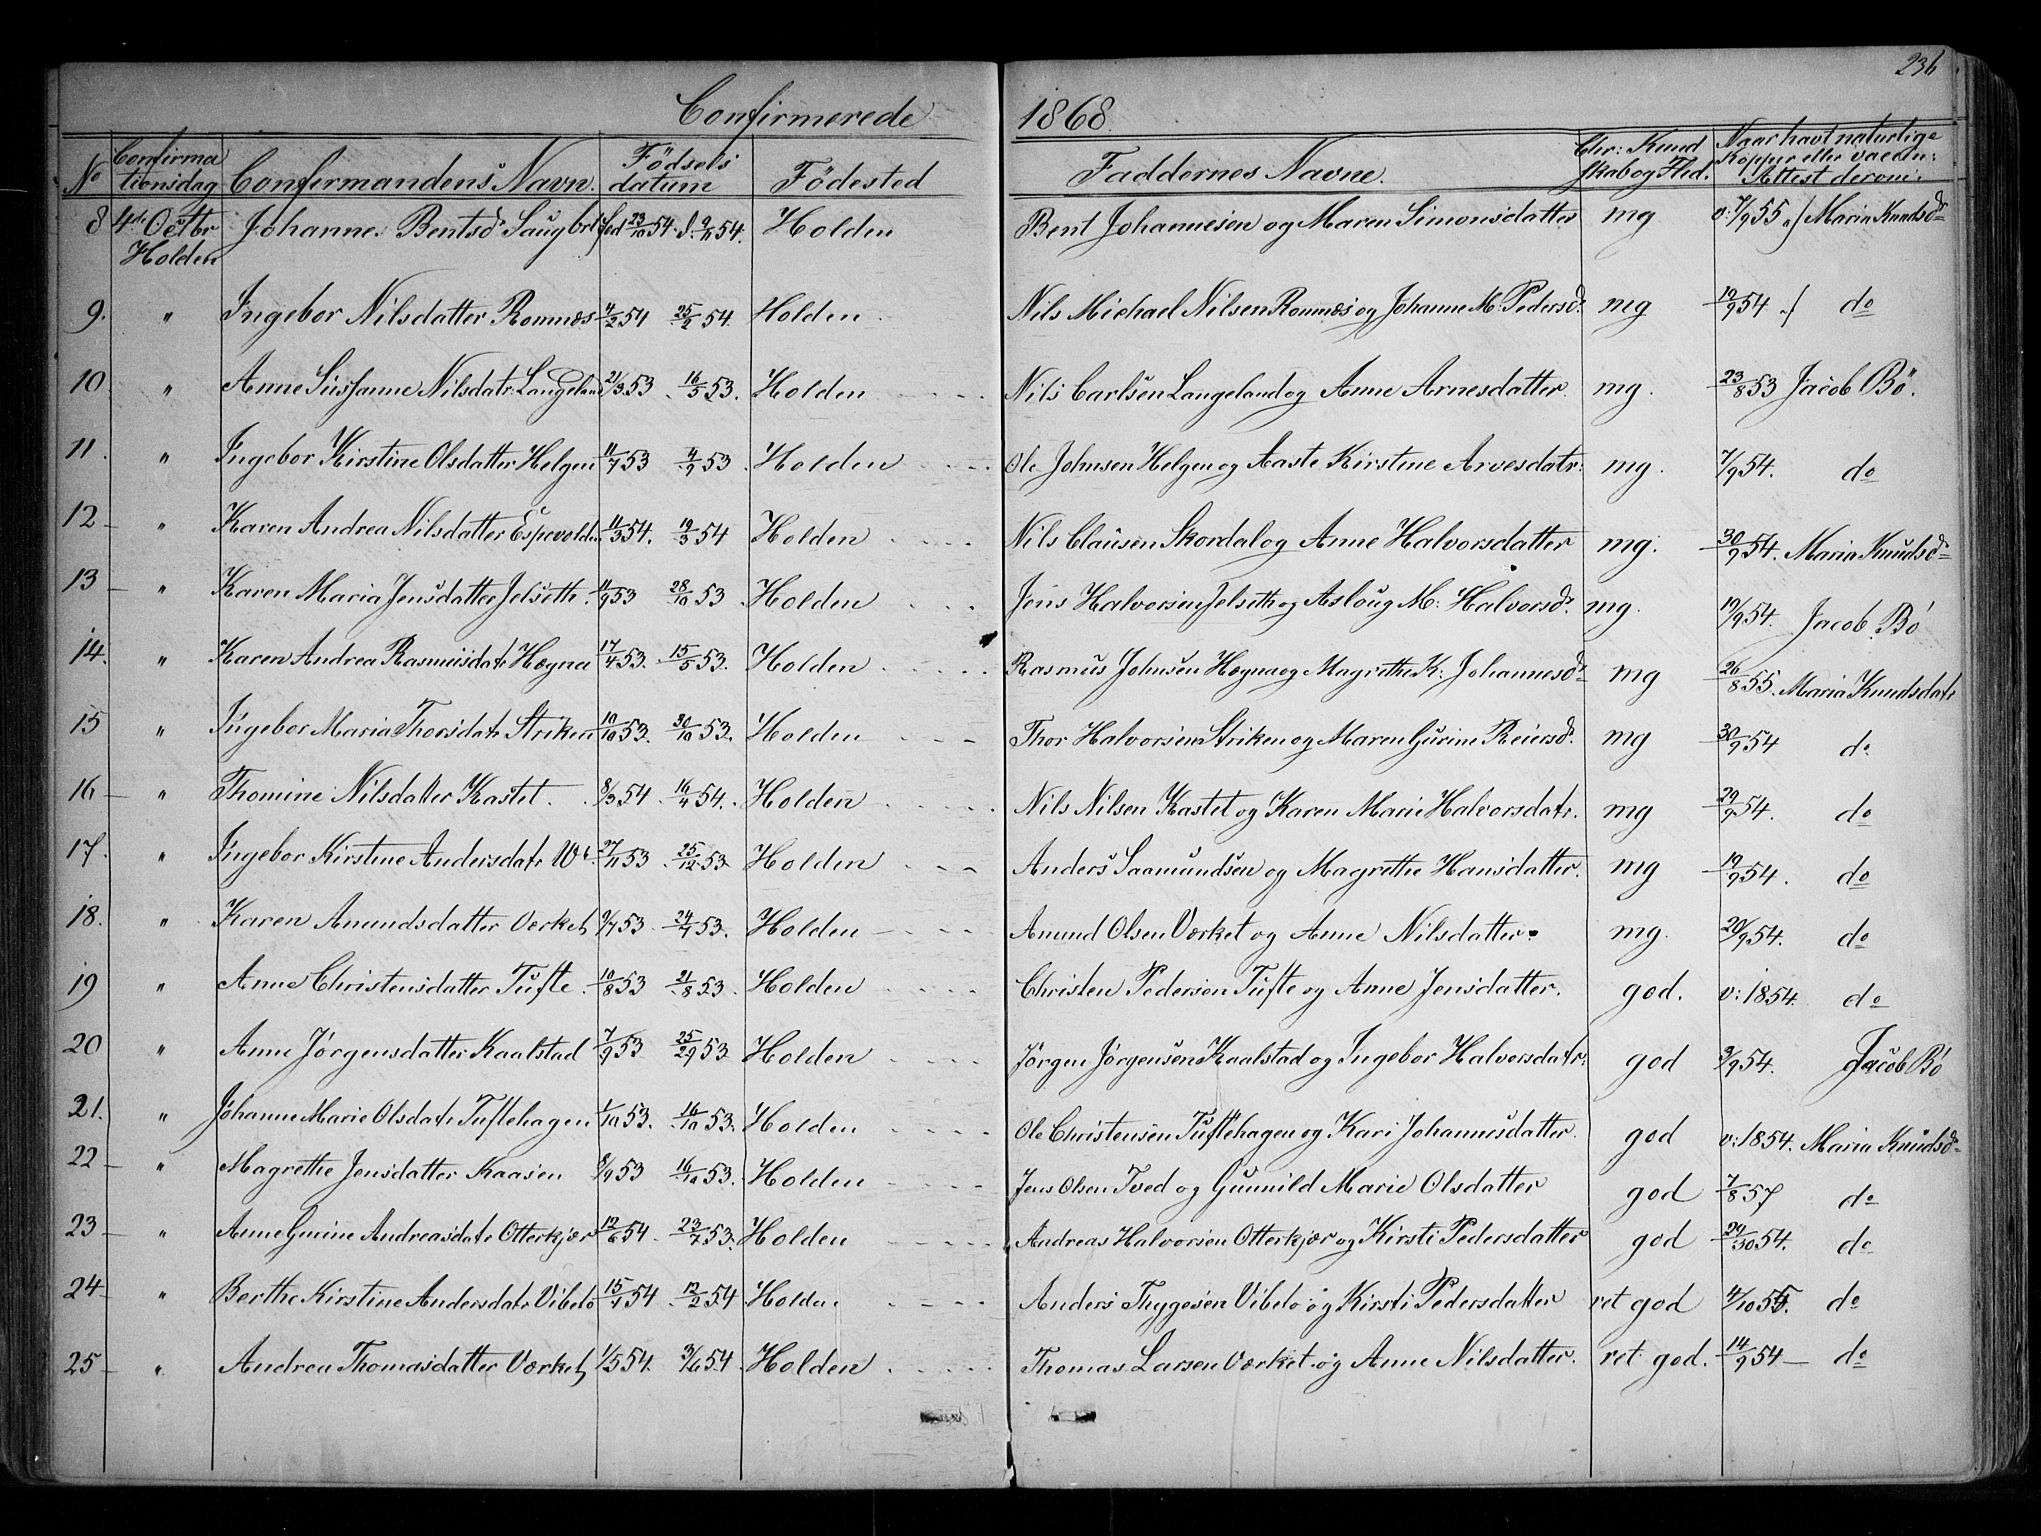 236
Confirmerede 1868.
No Confirma tionsdag Confirmandens Navn. Födsels datum Födested Faddernes Navne. Chr: Kund skab og Flid. Naar havt naturlige Kopper eller vaccin: Attest derom.
8 4de Octbr Holden Johannes Bentsd fød 23/10 54. d. 9/11 54. Holden Bent Johannesen og Maren Simonsdatter mg v: 7/9 55 Maria Knudsdr
9. " Ingebor Nilsdatter Romnæs 4/2 54 25/2 54. Holden Nils Michael Nilsen Romnæs og Johanne M: Pedersd. mg 19/9 54 do
10 " Anne Sussanne Nilsdatr. Langeland 21/3 53 16/5 53. Holden Nils Carlsen Langeland og Anne Arnesdatter. mg. 23/8 53 Jacob Bö.
11. " Ingebor Kirstine Olsdatter Helgen 11/7 53 4/9 53. Holden Ole Johnsen Helgen og Aaste Kirstine Arvesdatr. mg. 7/9 54. do
12 " Karen Andrea Nilsdatter Espevolden 11/3 54. 19/3 54 Holden Nils Clausen Skordal og Anne Halvorsdatter mg. 30/9 54. Maria Knudsd.
13 " Karen Maria Jensdatter Jelseth. 11/9 53 28/10 53 Holden Jens Halvorsen Jelseth og Aslaug M: Halvorsd. mg. 19/9 54. Jacob Bö
14. " Karen Andrea Rasmusdatr Hægna 17/4 53. 15/5 53. Holden Rasmus Johnsen Hægna og Magrethe K: Johannesd. mg 26/8 55. Maria Knudsdatr
15 " Ingebor Maria Thorsdatr Striken 10/10 53. 30/10 53. Holden Thor Halvorsen Striken og Maren Gurine Reiersd. mg 30/9 54 do
16 " Thomine Nilsdatter Kastet. 8/3 54. 16/4 54. Holden Nils Nilsen Kastet og Karen Marie Halvorsdatr. mg 29/9 54. do
17. " Ingebor Kirstine Andersdatr 27/11 53. 25/12 53 Holden Anders Saamundsen og Magrethe Hansdatter. mg 19/9 54. do
18. " Karen Amundsdatter Værket 9/7 53. 24/7 53. Holden Amund Olsen Værket og Anne Nilsdatter. mg. 20/9 54. do
19 " Anne Christensdatter Tufte. 10/8 53 21/8 53. Holden Christen Pedersen Tufte og Anne Jensdatter. god. v: 1854. do
20 " Anne Jørgensdatter Kaalstad 7/9 53 25/29 53 Holden Jørgen Jørgensen Kaalstad og Ingebor Halvorsdatr. god 3/9 54. Jacob Bö
21. " Johanne Marie Olsdatr Tuftehagen 1/10 53. 16/10 53. Holden Ole Christensen Tuftehagen og Kari Johannesdatter. god v: 1854. Maria Knudsd.
22 " Magrethe Jensdatter Kaasen 8/9 53 16/10 53. Holden Jens Olsen Tved og Gunnild Marie Olsdatter god 7/8 57 do
23 " Anne Gurine Andreasdatr Otterkjær 12/6 54. 23/7 53. Holden Andreas Halvorsen Otterkjær og Kirsti Pedersdatter god 29/30 54. do
24 " Berthe Kirstine Andersdatr Vibeto 15/1 54 12/2 54 Holden Anders Thygesen Vibeto og Kirsti Pedersdatter ret god 4/10 55. do
25 " Andrea Thomasdatter Værket 1/5 54. 3/6 54. Holden Thomas Larsen Værket og Anne Nilsdatter. ret god. 14/9 54 do